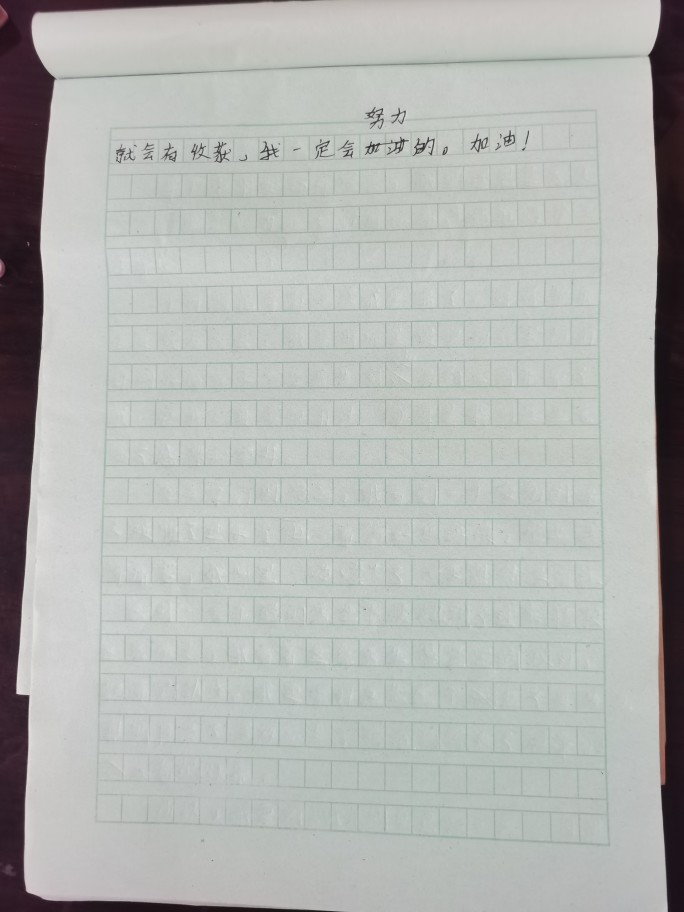 努力
就会有收获,我一定会加油的。加油!